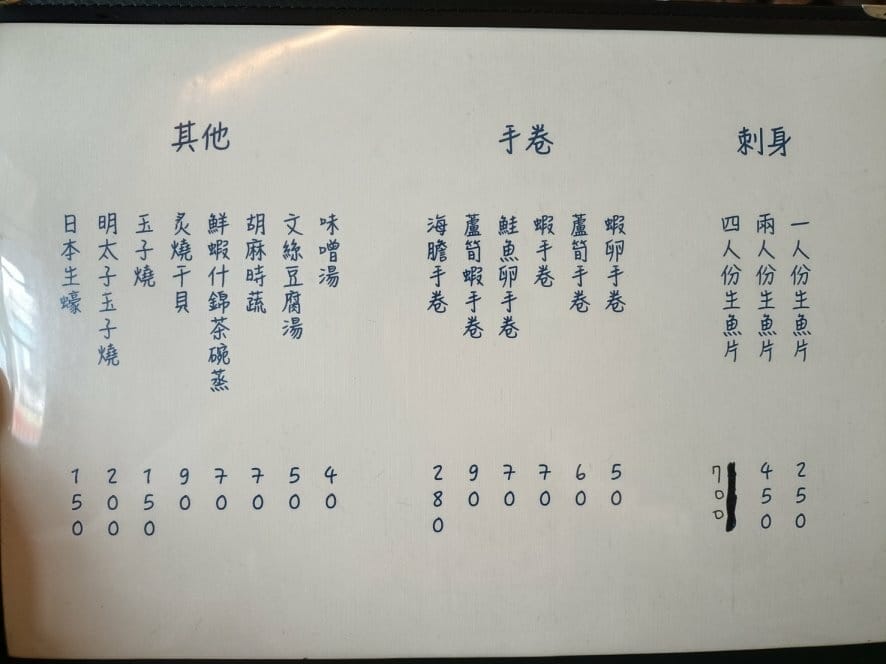 刺身
一人份生魚片
250
兩人份生魚片
450
四人份生魚片
700
手卷
蝦卵手卷
50
蘆筍手卷
60
蝦手卷
70
鮭魚卵手卷
70
蘆筍蝦手卷
90
海膽手卷
280
其他
味噌湯
40
文絲豆腐湯
50
胡麻時蔬
70
鮮蝦什錦茶碗蒸
70
炙燒干貝
90
玉子燒
150
明太子玉子燒
200
日本生蠔
150